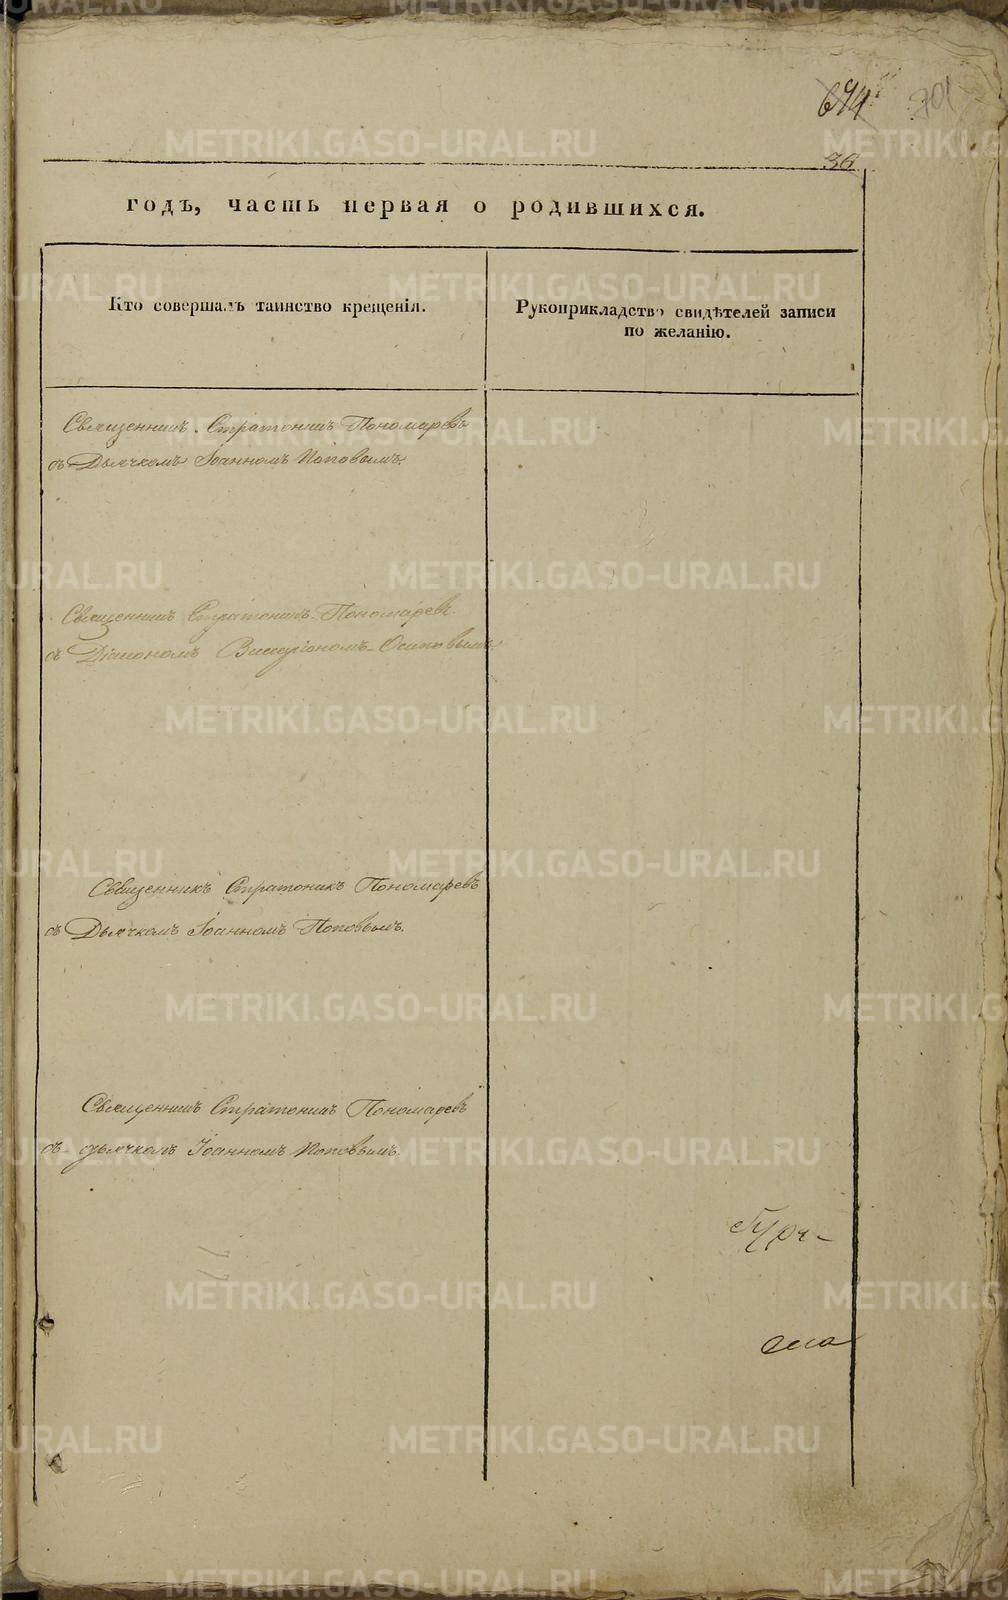 694
701
36
годъ, часть первая о родившихся.
Кто совершалъ таинство крещенія.
Рукоприкладство свидѣтелей записи
по желанію.
Священникъ Стратоникъ Пономаревъ
съ Дьячкомъ Іоанномъ Поповымъ.
Священникъ Стратоникъ Пономаревъ
съ Діакономъ Виссаріономъ Осиповымъ.
Священникъ Стратоникъ Пономаревъ
съ Дьячкомъ Іоанномъ Поповымъ.
Священникъ Стратоникъ Пономаревъ
съ дьячкомъ Іоанномъ Поповымъ.
METRIKI.GASO-URAL.RU